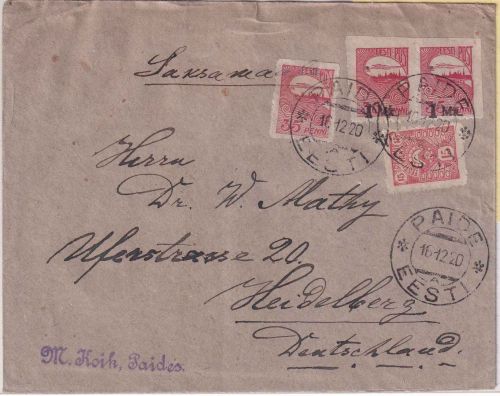 Saksamaa
EESTI POST
1 Mk.
1 Mk.
35 PENNI
15
PAIDE
16 12 20
EESTI
PAIDE
16 12 20
EESTI
PAIDE
16 12 20
EESTI
Herrn
Dr. W. Mathy
Uferstrasse 20.
Heidelberg
Deutschland.
M. Koih, Paides.